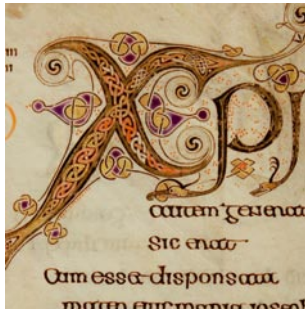 XPI
autem generat
sic erat
Cum essa disponsata
mater eius maria iosep